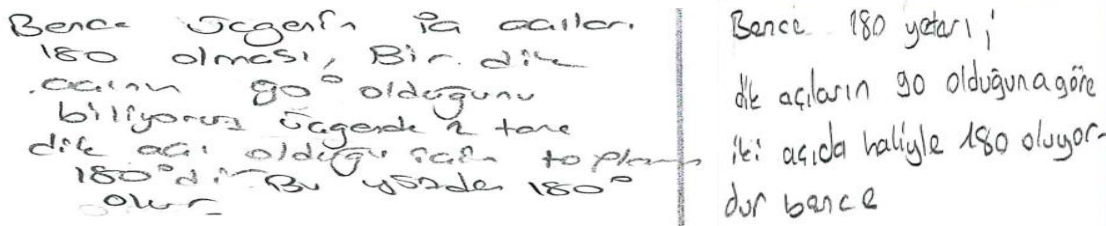 Bence üçgenin iç açıları
180 olması, Bir dik
açının 90° olduğunu
biliyoruz üçgende 2 tane
dik açı olduğu için toplam
180°dir Bu yüzden 180°
olur
Bence 180 yeterli;
dik açıların 90 olduğuna göre
iki açıda haliyle 180 oluyor-
dur bence